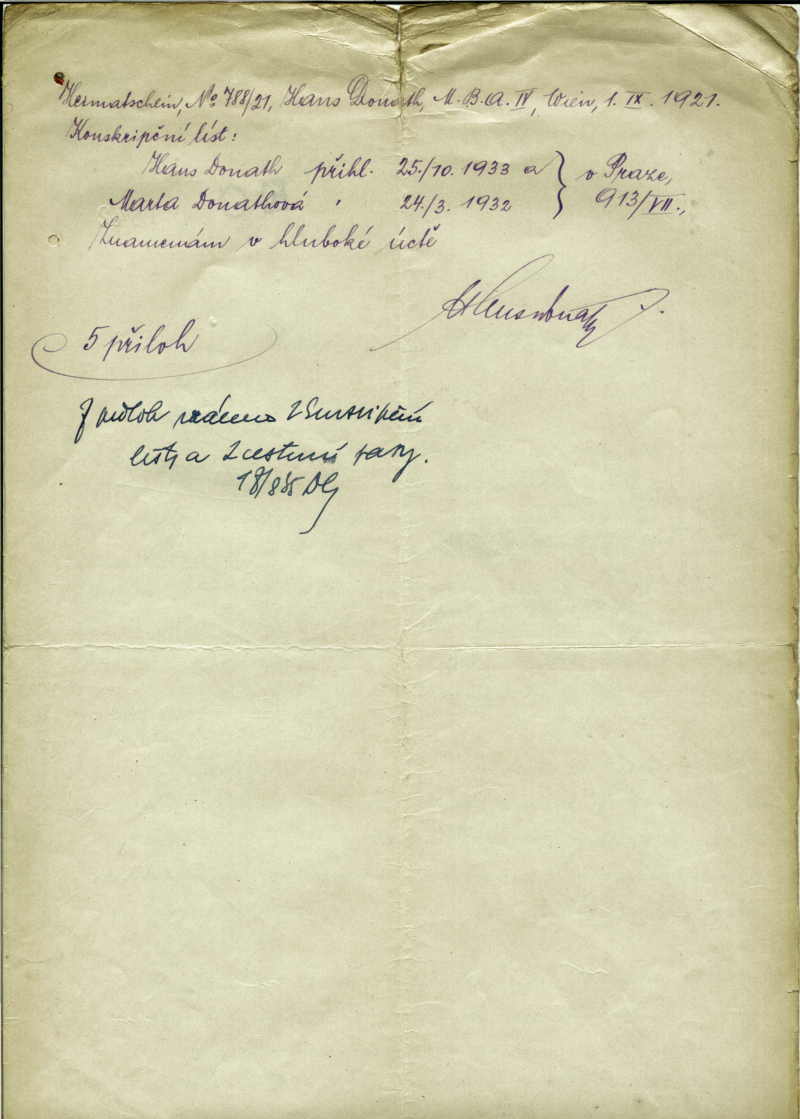 Heimatschein, No 788/21, Hans Donath, M. B. A. IV, Wien, 1. IX. 1921.
Konskripční list:
Hans Donath přihl. 25./10. 1933 a } v Praze,
Marta Donathová " 24./3. 1932 } 913/VII.,
Znamenám v hluboké úctě
5 příloh
příloh vráceno 2 konskripční
listy a 2 cestovní pasy.